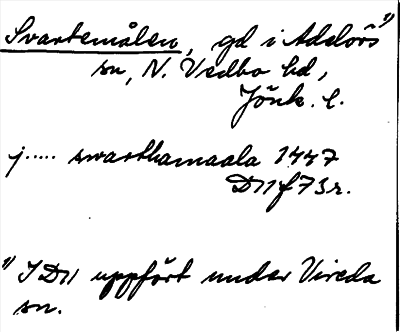 Svartemålen, gd i Adelövs 1)
sn, N. Vedbo hd,
Jönk. l.
j..... swarthamaala 1447
D11 f 73 r.
1) I D11 uppfört under Vireda
sn.